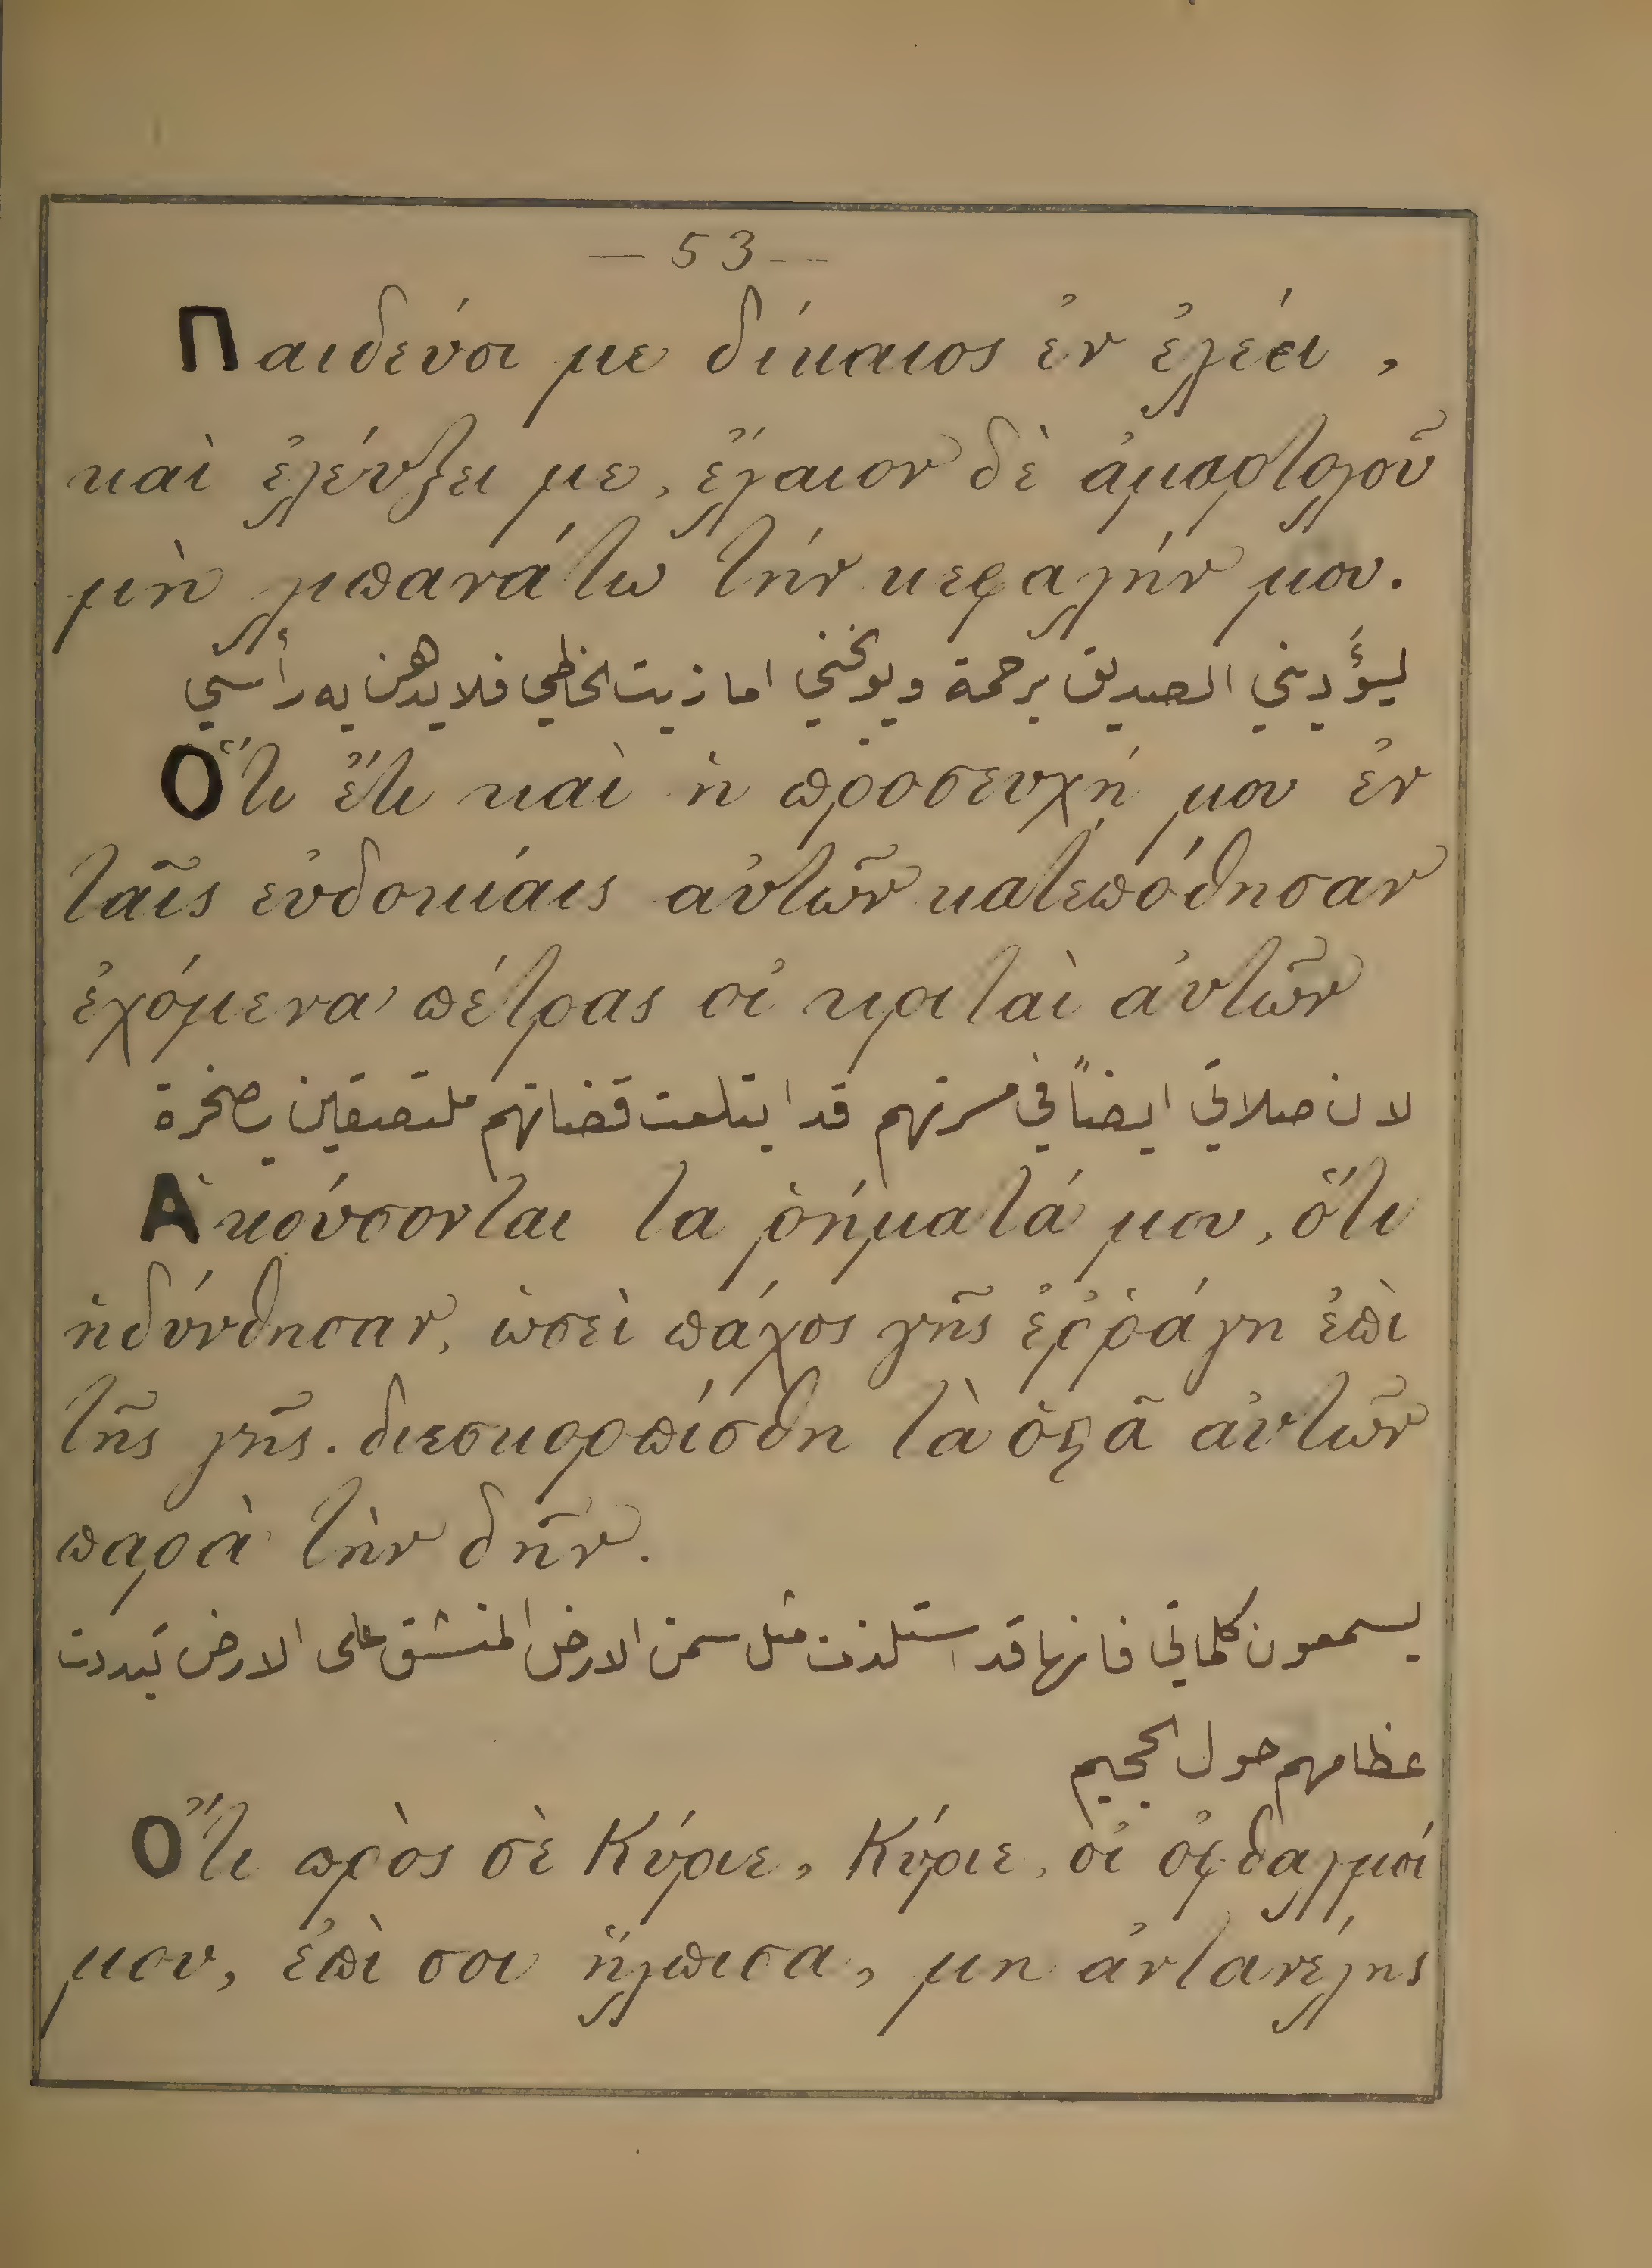 — 53 --
Παιδεύσι με δίκαιος ἐν ἐλέει,
καὶ ἐλέυξει με, ἔλαιον δὲ ἁμαρτολοῦ
μὴ λιπανάτω τήν κεφαλήν μου.
ليؤَدبني الصديق برحمة ويوبخني اما زيت الخاطي فلا يدهن به رأسي
Ὅτι ἔτι καὶ ἡ προσευχή μου ἐν
ταῖς εὐδοκίαις αὐτῶν κατεπόθησαν
ἐχόμενα πέτρας οἱ κριταὶ αὐτῶν
لان صلاتي ايضاً في مسرتهم قد ابتلعت قضاتهم ملتصقين بصخرة
Ἀκούσονται τα ῥήματά μου, ὅτι
ἡδύνθησαν, ὡσεὶ πάχος γῆς ἐῤῥάγη ἐπὶ
τῆς γῆς. διεσκορπίσθη τὰ ὀςᾶ αὐτῶν
παρὰ τὴν δῆν.
يسمعون كلماتي فانها قد استلذت مثل سمن الارض المنشق على الارض تبددت
عظامهم حول الجحيم
Ὅτι πρὸς σὲ Κύριε, Κύριε, οἱ ὀφθαλμοί
μου, ἐπὶ σοι ἤλπισα, μη ἀντανέλης